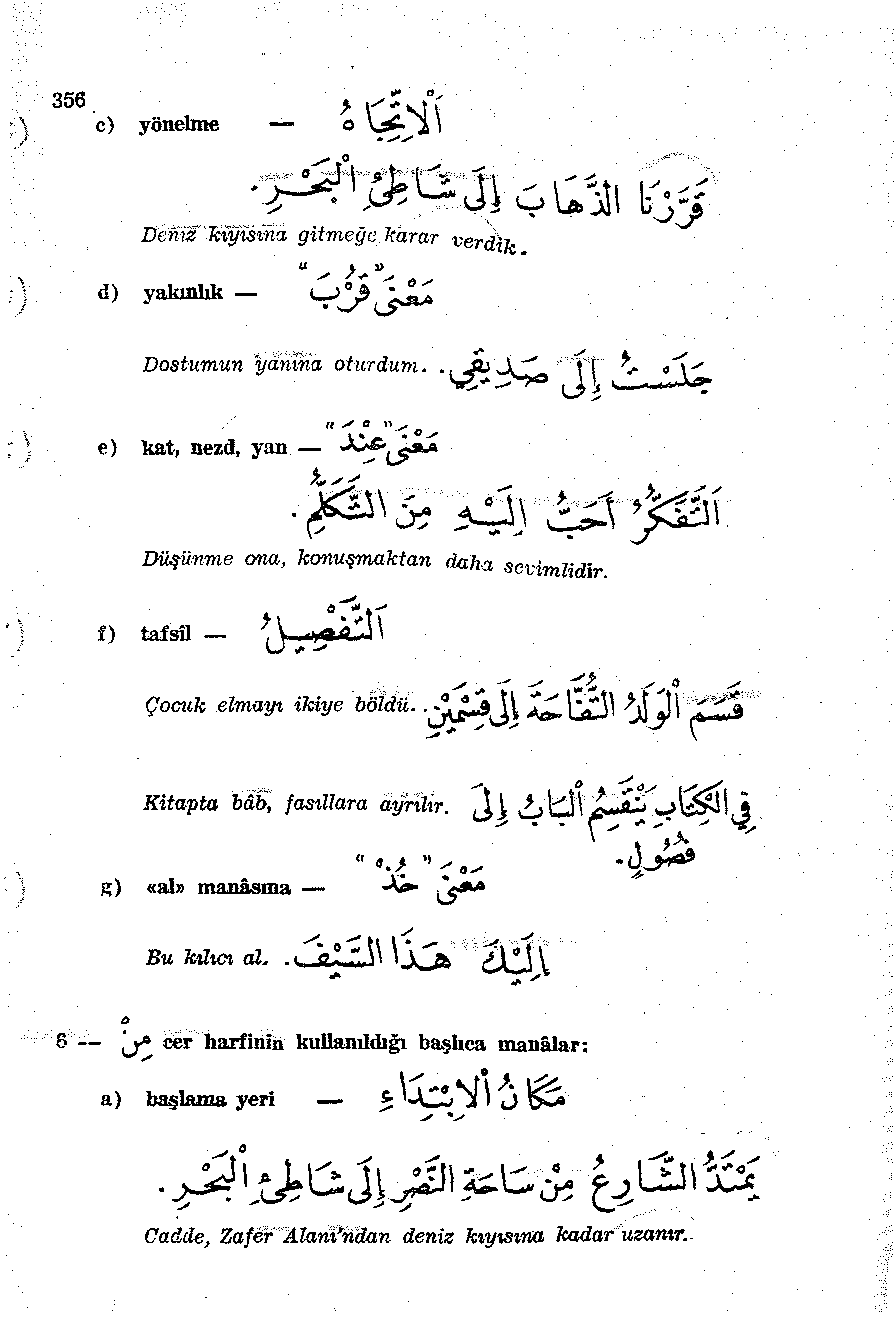 356
c) yönelme — اَلْاِتِّجَاهُ
قَرَّرْنَا الذَّهَابَ إِلَى شَاطِئِ الْبَحْرِ.
Deniz kıyısına gitmeğe karar verdik.
d) yakınlık — مَعْنَى "قُرْبَ"
Dostumun yanına oturdum. جَلَسْتُ إِلَى صَدِيقِي.
e) kat, nezd, yan — مَعْنَى "عِنْدَ"
اَلتَّفَكُّرُ أَحَبُّ إِلَيْهِ مِنَ التَّكَلُّمِ.
Düşünme ona, konuşmaktan daha sevimlidir.
f) tafsîl — اَلتَّفْصِيلُ
Çocuk elmayı ikiye böldü. قَسَمَ الْوَلَدُ التُّفَّاحَةَ إِلَى قِسْمَيْنِ.
Kitapta bâb, fasıllara ayrılır. فِي الْكِتَابِ يَنْقَسِمُ الْبَابُ إِلَى
فُصُولٍ.
g) «al» manâsına — مَعْنَى "خُذْ"
Bu kılıcı al. إِلَيْكَ هَذَا السَّيْفَ.
6 — مِنْ cer harfinin kullanıldığı başlıca manâlar:
a) başlama yeri — مَكَانُ الْاِبْتِدَاءِ
يَمْتَدُّ الشَّارِعُ مِنْ سَاحَةِ النَّصْرِ إِلَى شَاطِئِ الْبَحْرِ.
Cadde, Zafer Alanı'ndan deniz kıyısına kadar uzanır.